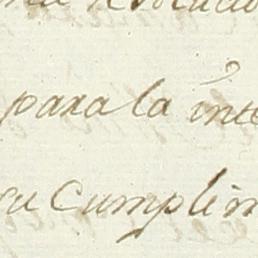 para la inte
su cumplim